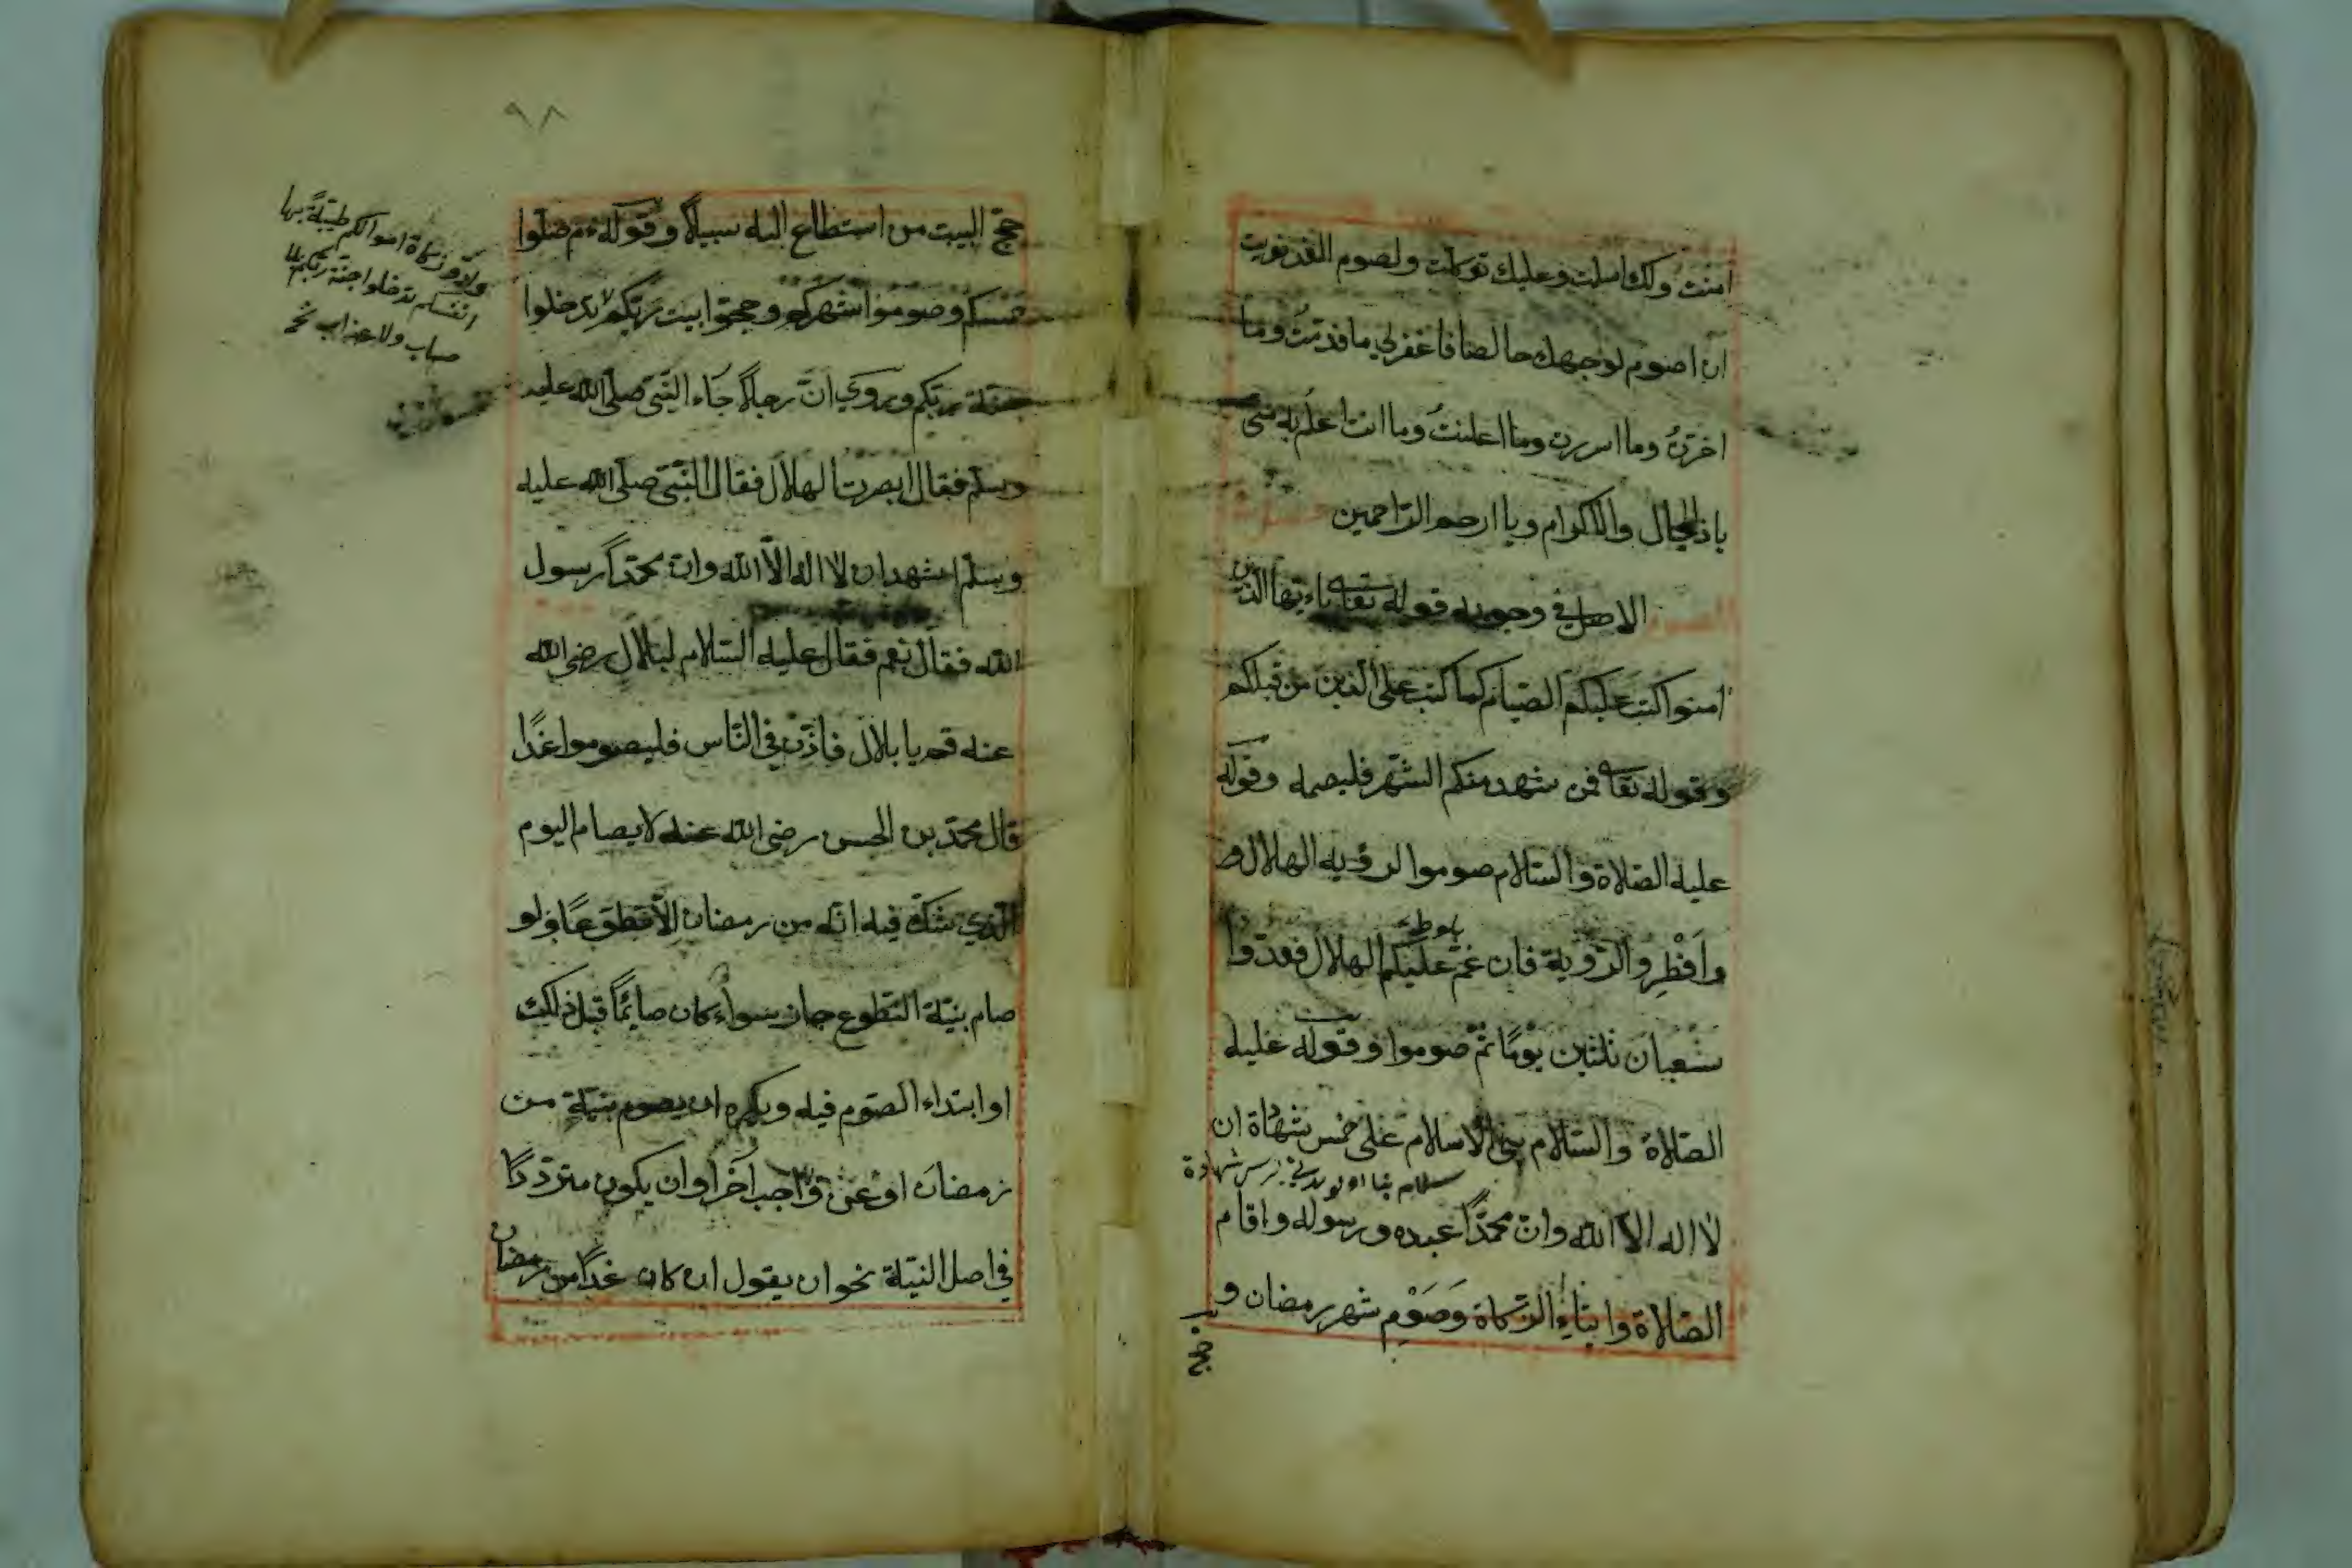 امنت ولك اسلمت وعليك توكلت ولصوم الغد نويت
ان اصوم لوجهك خالصا فاغفرلي ما قدمت وما
اخرت وما اسررت وما اعلنت وما انت اعلم به منى
ياذالجلال والاكرام ويا ارحم الراحمين
الصوم الاصل في وجوبه قوله تعا ياءيها الذين
امنوا كتب عليكم الصيام كما كتب على الذين من قبلكم
وقوله تعا فمن شهد منكم الشهر فليصمه وقوله
عليه الصلاة والسلام صوموا لرؤيه الهلال و
وافطروا لرؤية فان غم عليكم الهلال فعدوا
شعبان ثلثين يوما ثم صوموا وقوله عليه
الصلاة والسلام بنى الاسلام على خمس شهاة ان
شهادة
لا اله الا الله وان محمدا عبده ورسوله واقام
الصلاة وايتاء الزكاة وصوم شهر رمضان و
حج
٩٨
حج البيت من استطاع اليه سبيلا وقوله عم صلوا
خمسكم وصوموا شهركم وحجوا بيت ربكم تدخلوا
جنة ربكم وروي ان رجلا جاء النبي صلى الله عليه
وسلم فقال ابصرت الهلال فقال النبي صلى الله عليه
وسلم اشهد ان لا اله الا الله وان محمدا رسول
الله فقال نعم فقال عليه السلام لبلال رضي الله
عنه قم يا بلال فاذن في الناس فليصوموا غدا
قال محمد بن الحسن رضي الله عنه لا يصام اليوم
الذي شك فيه انه من رمضان الا تطوعا ولو
صام بنية التطوع جاز سواء كان صائما قبل ذلك
او ابتداء الصوم فيه ويكره ان يصوم بنية من
رمضان او عن واجب آخر او ان يكون مترددا
في اصل النية نحو ان يقول ان كان غدا من رمضان
زكاة اموالكم طيبة بها
انفسكم تدخلوا جنة ربكم بلا
حساب ولا عذاب